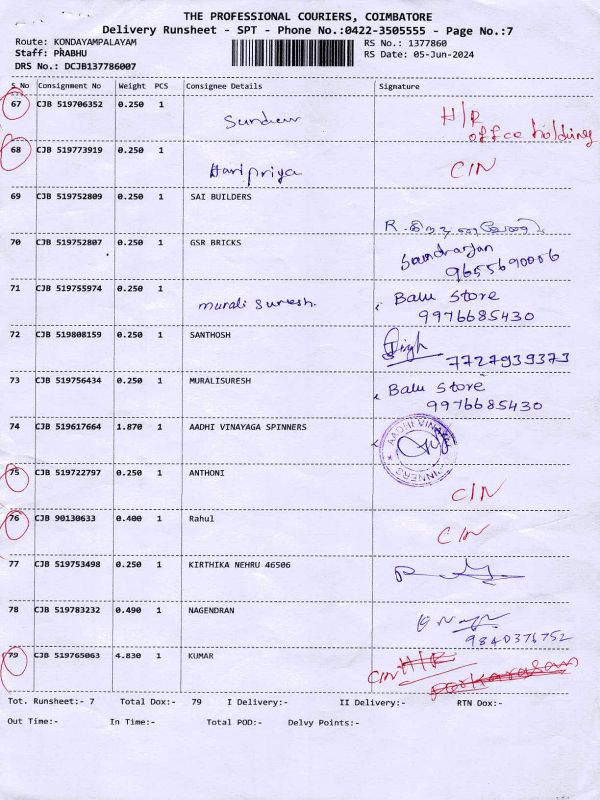 THE PROFESSIONAL COURIERS, COIMBATORE
Delivery Runsheet - SPT - Phone No.:0422-3505555 - Page No.:7
Route: KONDAYAMPALAYAM RS No.: 1377860
Staff: PRABHU RS Date: 05-Jun-2024
DRS No.: DCJB137786007
S.No Consignment No Weight PCS Consignee Details Signature
67 CJB 519706352 0.250 1 H/R
office holding
68 CJB 519773919 0.250 1 Haripriya CIN
69 CJB 519752809 0.250 1 SAI BUILDERS
R.
70 CJB 519752807 0.250 1 GSR BRICKS
9655690006
71 CJB 519755974 0.250 1 murali suresh. Balu Store
9976685430
72 CJB 519808159 0.250 1 SANTHOSH
7727939373
73 CJB 519756434 0.250 1 MURALISURESH Balu Store
9976685430
74 CJB 519617664 1.870 1 AADHI VINAYAGA SPINNERS
AADHI VINAYA
SPINNERS
75 CJB 519722797 0.250 1 ANTHONI CIN
76 CJB 90130633 0.400 1 Rahul CIN
77 CJB 519753498 0.250 1 KIRTHIKA NEHRU 46506
78 CJB 519783232 0.490 1 NAGENDRAN
9840376752
79 CJB 519765063 4.830 1 KUMAR CIN H/R
Tot. Runsheet:- 7 Total Dox:- 79 I Delivery:- II Delivery:- RTN Dox:-
Out Time:- In Time:- Total POD:- Delvy Points:-